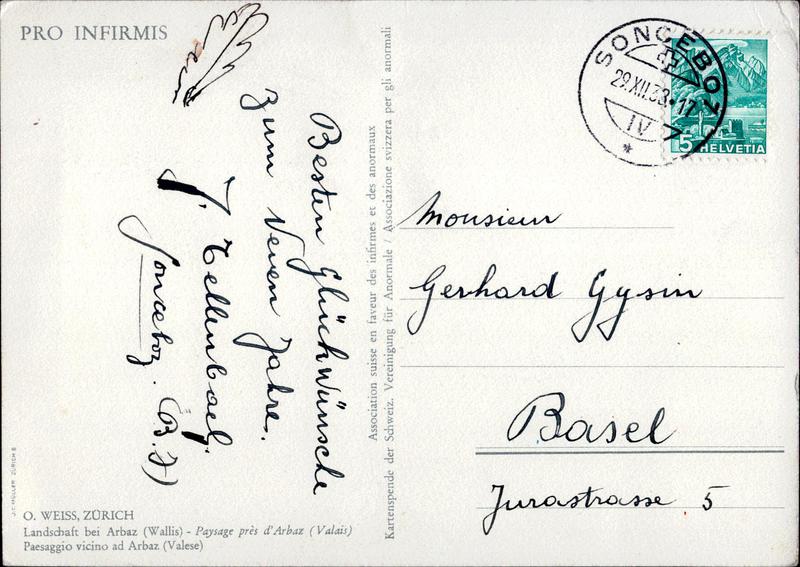 PRO INFIRMIS
Besten Glückwünsche
zum Neuen Jahre.
J. Tellenbach.
Sonceboz. (B.J)
O. WEISS, ZÜRICH
Landschaft bei Arbaz (Wallis) - Paysage près d'Arbaz (Valais)
Paesaggio vicino ad Arbaz (Valese)
Association suisse en faveur des infirmes et des anormaux
Kartenspende der Schweiz. Vereinigung für Anormale / Associazione svizzera per gli anormali
SONCEBOZ
29.XII.33.17
IV
5 HELVETIA
Monsieur
Gerhard Gysin
Basel
Jurastrasse 5